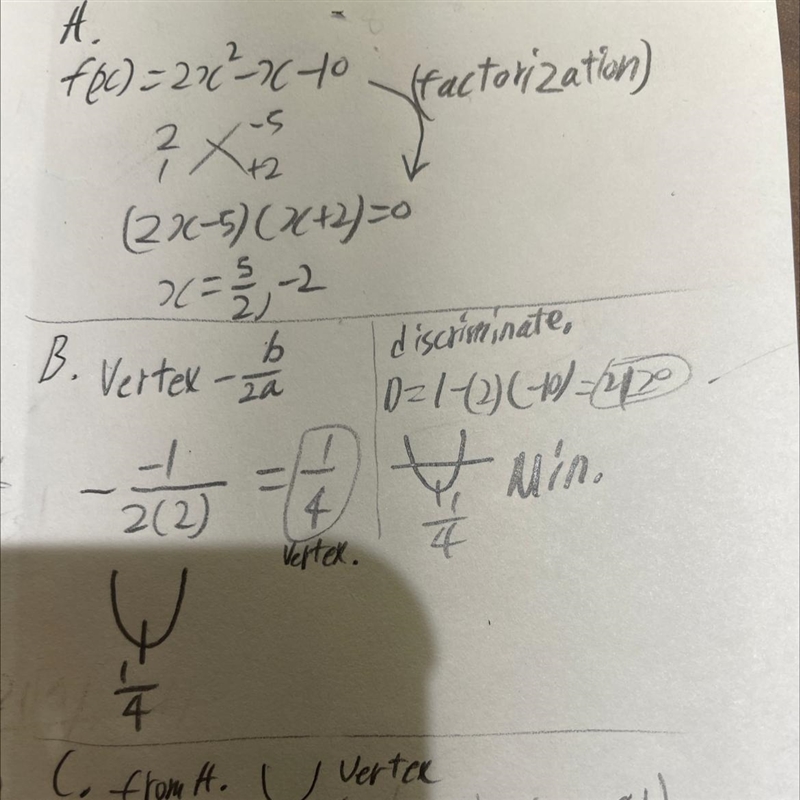 A.
f(x)=2x²-x-10 (factorization)
2 -5
1 +2
(2x-5)(x+2)=0
x=5/2, -2
B. Vertex -b/2a
- -1/2(2) = 1/4
vertex.
1/4
discriminate.
D=1-(2)(-10)=21>0
Min.
1/4
C. from A. Vertex